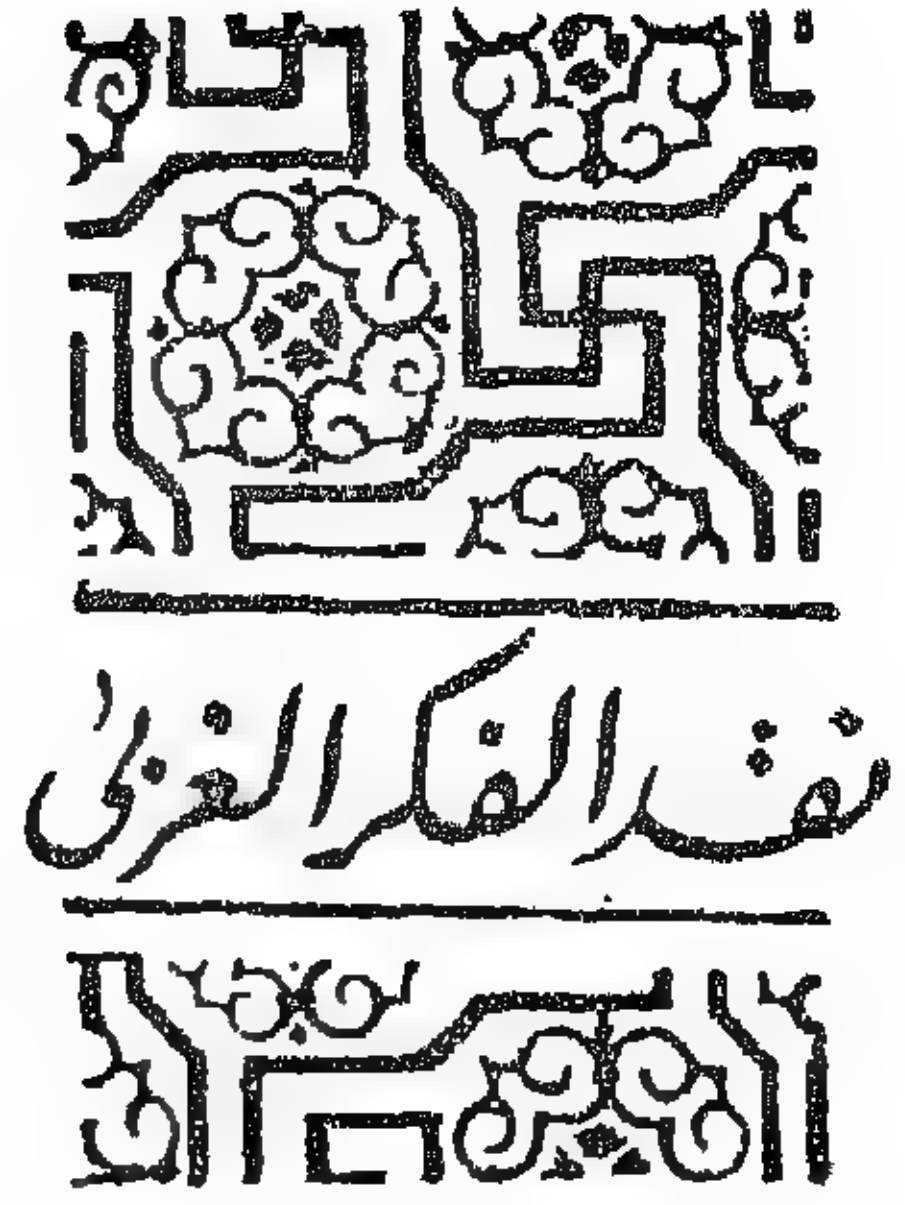 نقد الفكر الغربى